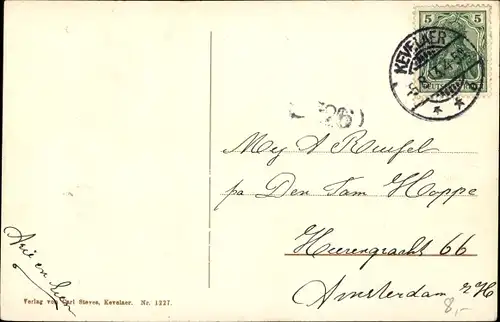 5 5
KEVELAER
(26)
Mej A Reusel
pa Den Tam Hoppe
Heerengracht 66
Amsterdam
Arie en
Verlag von Carl Steves, Kevelaer. Nr. 1227.
8,-